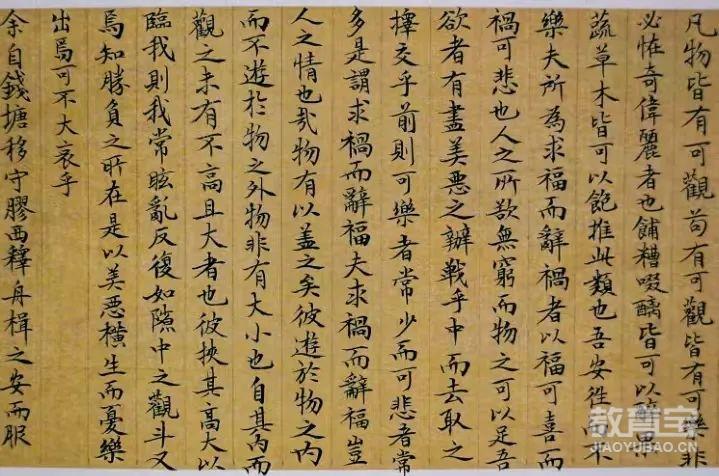 凡物皆有可觀苟有可觀皆有可樂非
必恠奇偉麗者也餔糟啜醨皆可以醉果
蔬草木皆可以飽推此類也吾安往而不
樂夫所為求福而辭禍者以福可喜而
禍可悲也人之所欲無窮而物之可以足吾
欲者有盡美惡之辨戰乎中而去取之
擇交乎前則可樂者常少而可悲者常
多是謂求禍而辭福夫求禍而辭福豈
人之情也哉物有以蓋之矣彼遊於物之内
而不遊於物之外物非有大小也自其内而
觀之未有不高且大者也彼挾其高大以
臨我則我常眩亂反復如隙中之觀斗又
焉知勝負之所在是以美惡橫生而憂樂
出焉可不大哀乎
余自錢塘移守膠西釋舟楫之安而服
教育宝
JIAOYUBAO.CN